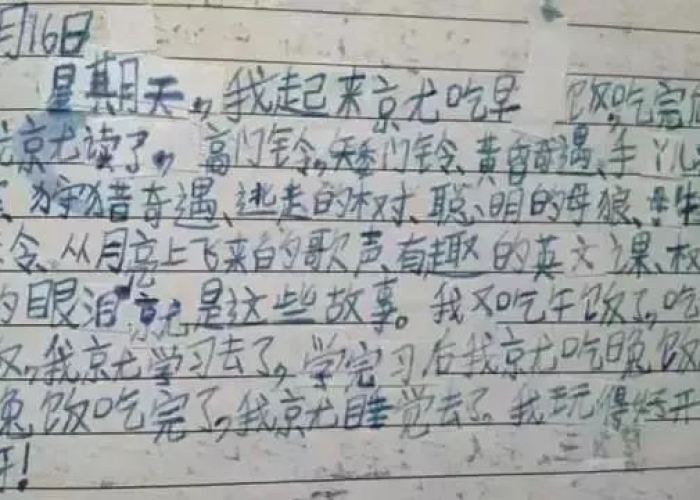 月16日
星期天,我起来就吃早饭,吃完
就读了,高门铃、矮门铃、黄昏奇遇、手丫儿
狩猎奇遇、逃走的树、聪明的母狼、
令、从月亮上飞来的歌声、有趣的英文课、
的眼泪就是这些故事。我又吃午饭了,吃
饭,我就学习去了,学完习后我就吃晚饭
晚饭吃完了,我就睡觉去了。我玩得好开
!